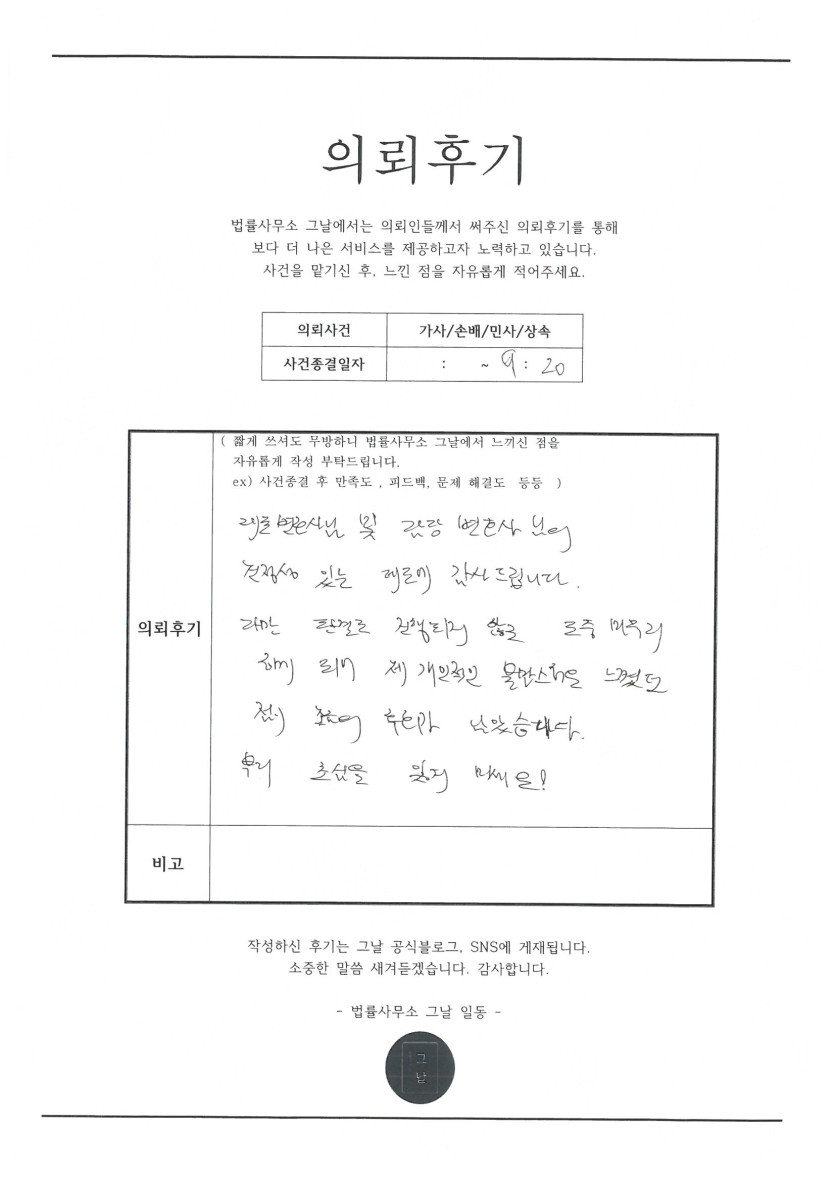 의뢰후기
법률사무소 그날에서는 의뢰인들께서 써주신 의뢰후기를 통해
보다 더 나은 서비스를 제공하고자 노력하고 있습니다.
사건을 맡기신 후, 느낀 점을 자유롭게 적어주세요.
의뢰사건 가사/손배/민사/상속
사건종결일자 : ~ 9 : 20
( 짧게 쓰셔도 무방하니 법률사무소 그날에서 느끼신 점을
자유롭게 작성 부탁드립니다.
ex) 사건종결 후 만족도 , 피드백, 문제 해결도 등등 )
변호사님 및 담당 변호사님의
진정성 있는 감사드립니다.
다만 판결로 진행되지 않고 도중 마무리
하게 되어 제 개인적인 불만스러움을 느꼈던
점이 후회가 남았습니다.
부디 초심을 잃지 마세요!
의뢰후기
비고
작성하신 후기는 그날 공식블로그, SNS에 게재됩니다.
소중한 말씀 새겨듣겠습니다. 감사합니다.
- 법률사무소 그날 일동 -
그
날